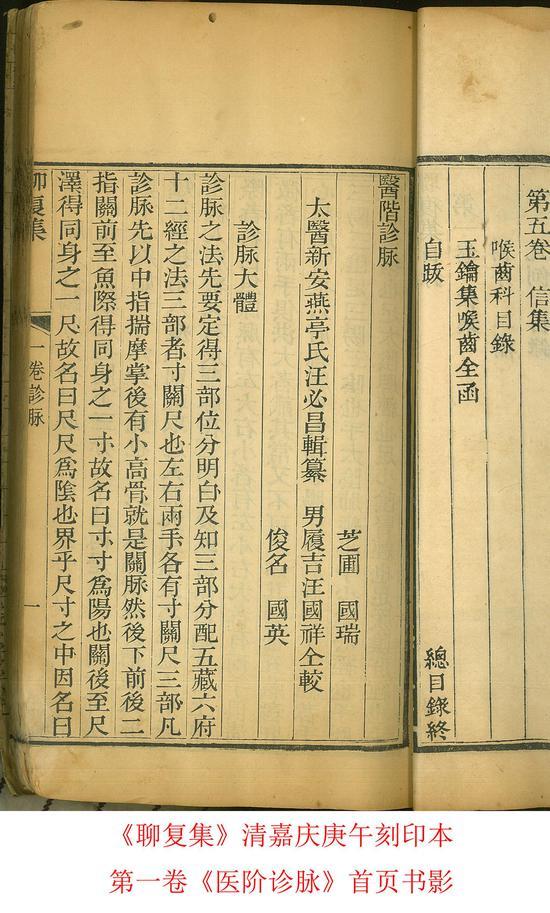 第五卷 信集
喉齒科目錄
玉鑰集喉齒全函
自跋
總目錄終
醫階診脈
芝圃 國瑞
太醫新安燕亭氏汪必昌輯纂 男履吉汪國祥仝較
俊名 國英
診脈大體
診脈之法先要定得三部位分明白及知三部分配五藏六府
十二經之法三部者寸關尺也左右兩手各有寸關尺三部凡
診脈先以中指揣摩掌後有小高骨就是關脈然後下前後二
指關前至魚際得同身之一寸故名曰寸寸爲陽也關後至尺
澤得同身之一尺故名曰尺尺爲陰也界乎尺寸之中因名曰
聊復集
一卷診脈
一
《聊复集》清嘉庆庚午刻印本
第一卷《医阶诊脉》首页书影